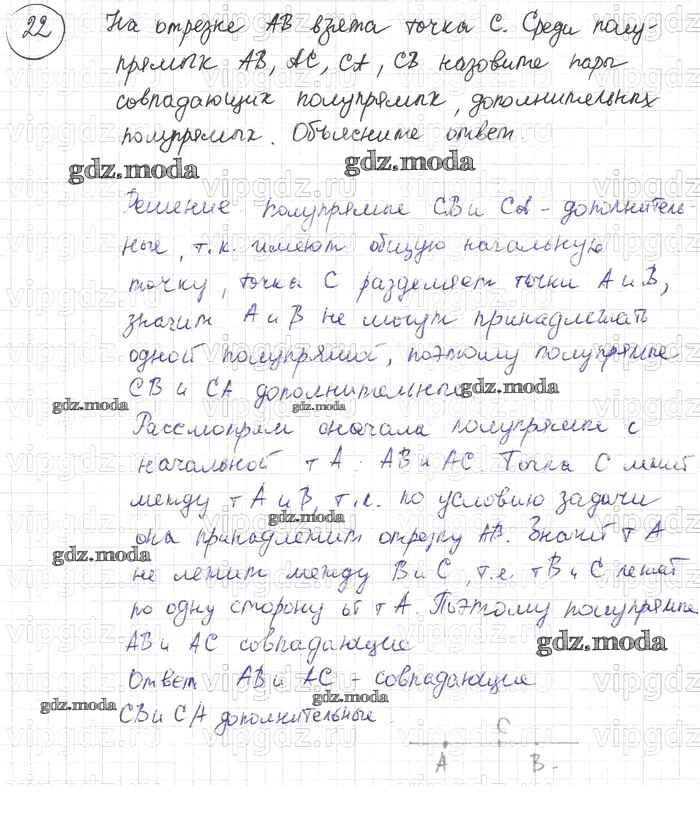 22
На отрезке АВ взята точка С. Среди полу-
прямых АВ, АС, СА, СВ назовите пары
совпадающих полупрямых, дополнительных
полупрямых. Объясните ответ
gdz.moda gdz.moda
Решение полупрямые СВ и СА - дополнитель-
ные, т.к. имеют общую начальную
точку, точка С разделяет точки А и В,
значит А и В не могут принадлежать
одной полупрямой, поэтому полупрямые
СВ и СА дополнительные gdz.moda
gdz.moda gdz.moda
Рассмотрим сначала полупрямые с
начальной т А: АВ и АС. Точка С лежит
между т А и В, т.к. по условию задачи
gdz.moda
она принадлежит отрезку АВ. Значит т А
gdz.moda
не лежит между В и С, т.е. т В и С лежат
по одну сторону от т А. Поэтому полупрямые
АВ и АС совпадающие gdz.moda
Ответ АВ и АС - совпадающие
gdz.moda gdz.moda
СВ и СА дополнительные
С
А В